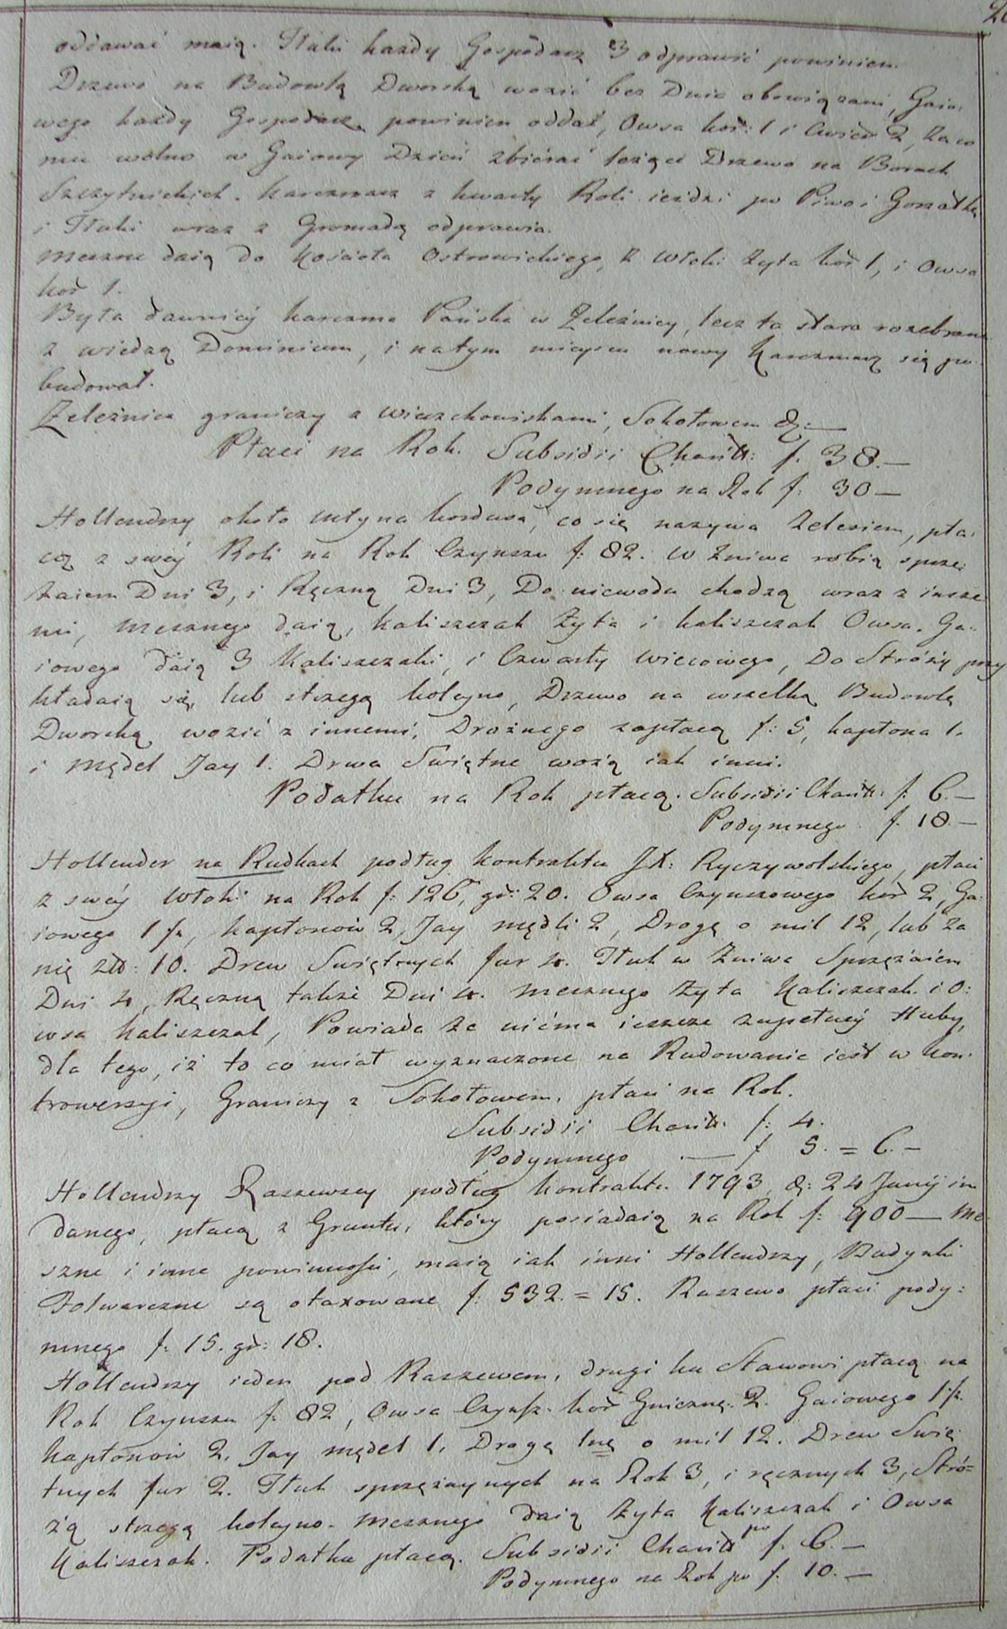 oddawać maią. Tłuki każdy Gospodarz 3 odprawić powinien.
Drzewo na Budowlą Dworską wozić bez Dnia obowiązani, Gaio:
wego każdy Gospodarz powinien oddać, Owsa kor: 1 i Cwierć 2, za co
mu wolno w Gaiowy Dzień zbierać leżące Drzewo na Borach
Szczytnickich. Karczmarz z kwarty Roli iezdzi po Piwo i Gorzałkę
i Tłuki wraz z Gromadą odprawia.
Meszne daią do Kościoła Ostrowickiego, z Włoki Żyta kor 1, i Owsa
kor 1.
Była dawniey karczma Pańska w Zeleźnicy, lecz ta stara rozebrana
z wiedzą Dominium, i na tym mieyscu nowy Karczmarz się po:
budował.
Zeleźnica graniczy z Wierzchowiskami, Sokołowem &:—
Płaci na Rok. Subsidii Charitt: f. 38.—
Podymnego na Rok f: 30—
Hollendrzy około Młyna Kordusa, co się nazywa Zelesiem, pła:
cą z swéy Roli na Rok Czynszu f: 82. W Żniwa robią sprzę:
żaiem Dni 3, i Ręczną Dni 3, Do niewodu chodzą wraz z insze
mi, Mesznego daią, kaliszczak Żyta i kaliszczak Owsa. Ga:
iowego daią 3 Kaliszczaki, i Czwarty Wiecowego, Do Stróży przy
kładaią się, lub strzegą koleyno, Drzewo na wszelką Budowlę
Dworską wozić z innemi, Drożnego zapłacą f: 5, kapłona 1.
i Mędel Jay 1. Drwa Swiętne wożą iak inni.
Podatku na Rok płacą. Subsidii Charitt: f: 6.—
Podymnego f. 18.—
Hollender na Rudkach podług kontraktu JX: Ryczywolskiego, płaci
z swéy Włoki na Rok f: 126, gr: 20. Owsa Czynszowego kor 2, Ga:
iowego 1 f., kapłonów 2, Jay mędli 2, Drogę o mil 12, lub za
nię złł: 10. Drew Swiętnych fur 4. Tłuk w Żniwa Sprzężaiem
Dni 4, Ręczną także Dni 4. Mesznego Żyta Kaliszczak i O:
wsa kaliszczak, Powiada że niéma ieszcze zupełnéy Huby,
dla tego, iż to co miał wyznaczone na Radowanie iest w kon:
trowersyi, Graniczy z Sokołowem, płaci na Rok.
Subsidii Charitt. f: 4.
Podymnego — f 5. = 6.—
Hollendrzy Raszewscy podług kontraktu 1793 d: 24 Junij im
danego, płacą z Gruntu, który posiadaią na Rok f: 900— Me
szne i inne powinności, maią iak inni Hollendrzy, Budynki
Folwarczne są otaxowane f: 532. = 15. Raszewo płaci pody:
mnego f: 15. gr: 18.
Hollendrzy ieden pod Raszewem, drugi ku Stawowi płacą na
Rok Czynszu f: 82, Owsa Czynsz. kor 2. Gaiowego 1 f.
Kapłonów 2, Jay mędel 1, Drogę 1nę o mil 12. Drew Swię:
tnych fur 2. Tłuk sprzężaynych na Rok 3, i ręcznych 3, Stró=
żą strzegą koleyno. Mesznego daią Żyta Kaliszczak i Owsa
Kaliszczak. Podatku płacą. Subsidii Charitt po f. 6.—
Podymnego na Rok po f. 10.—